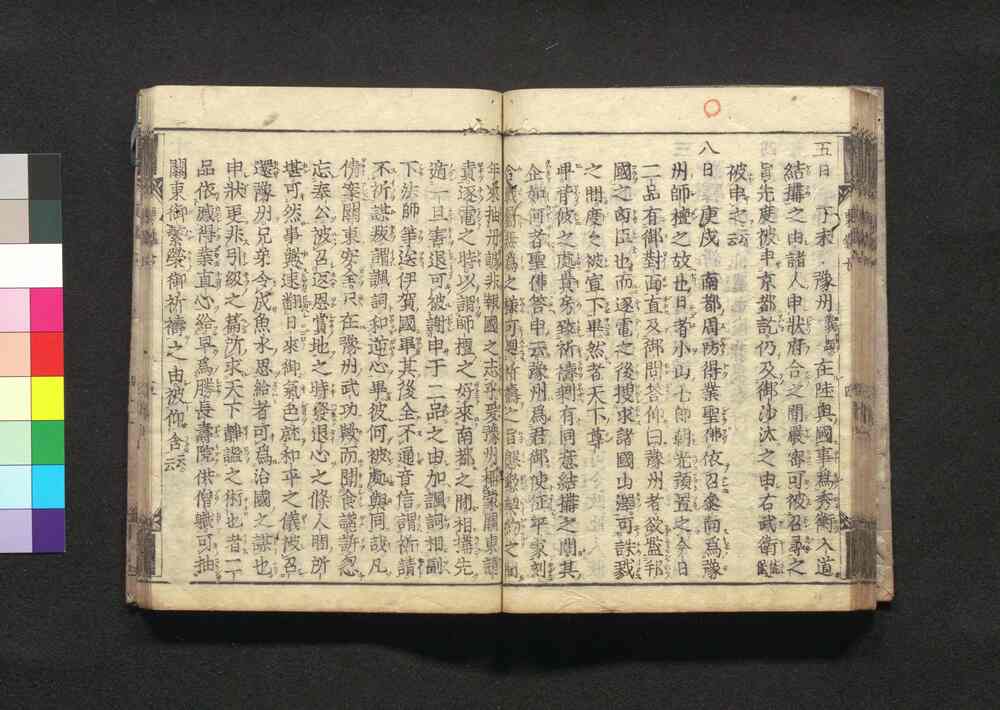 五日　丁未　豫州在陸奥國事爲秀衡入道
結搆之由諸人申狀府合之間嚴密可被召尋之
旨先度被申京都訖仍及御沙汰之由右武衛
被申之云云
八日　庚戌　南都周防得業聖佛依召參向爲豫
州師檀之故也日者小山七郎朝光預置之今日
二品有御對面直及御問答仰曰豫州者欲濫邦
國之凶臣也而逐電之後搜求諸國山澤可誅戮
之間度々被宣下畢然者天下尊
卑背彼之處貴房致祈禱剩有同意結搆之聞其
企如何者聖佛答申云豫州爲君御使征平家刻
年來抽丹誠非報國之志乎爰豫州稱蒙關東譴
責逐電之時以謂師檀之好來南都之間相搆先
遁一旦害退可被謝申于二品之由加諷詞相副
下法師等送伊賀國畢其後全不通音信謂祈請
不祈謀叛謂諷詞和逆心畢彼何被處與同哉凡
倩案關東安全只在豫州武功歟而聞食讒訴忽
忘奉公被召返恩賞地之時發退心之條人間所
堪可然事歟速翻日來御氣色就和平之儀被召
還豫州兄弟令成魚水思給者可爲治國之謀也
申狀更非引級之篇所求天下靜謐之術也者二
品依感得業直心給早爲勝長壽院供僧職可抽
關東御繁榮御祈禱之由被仰含云云